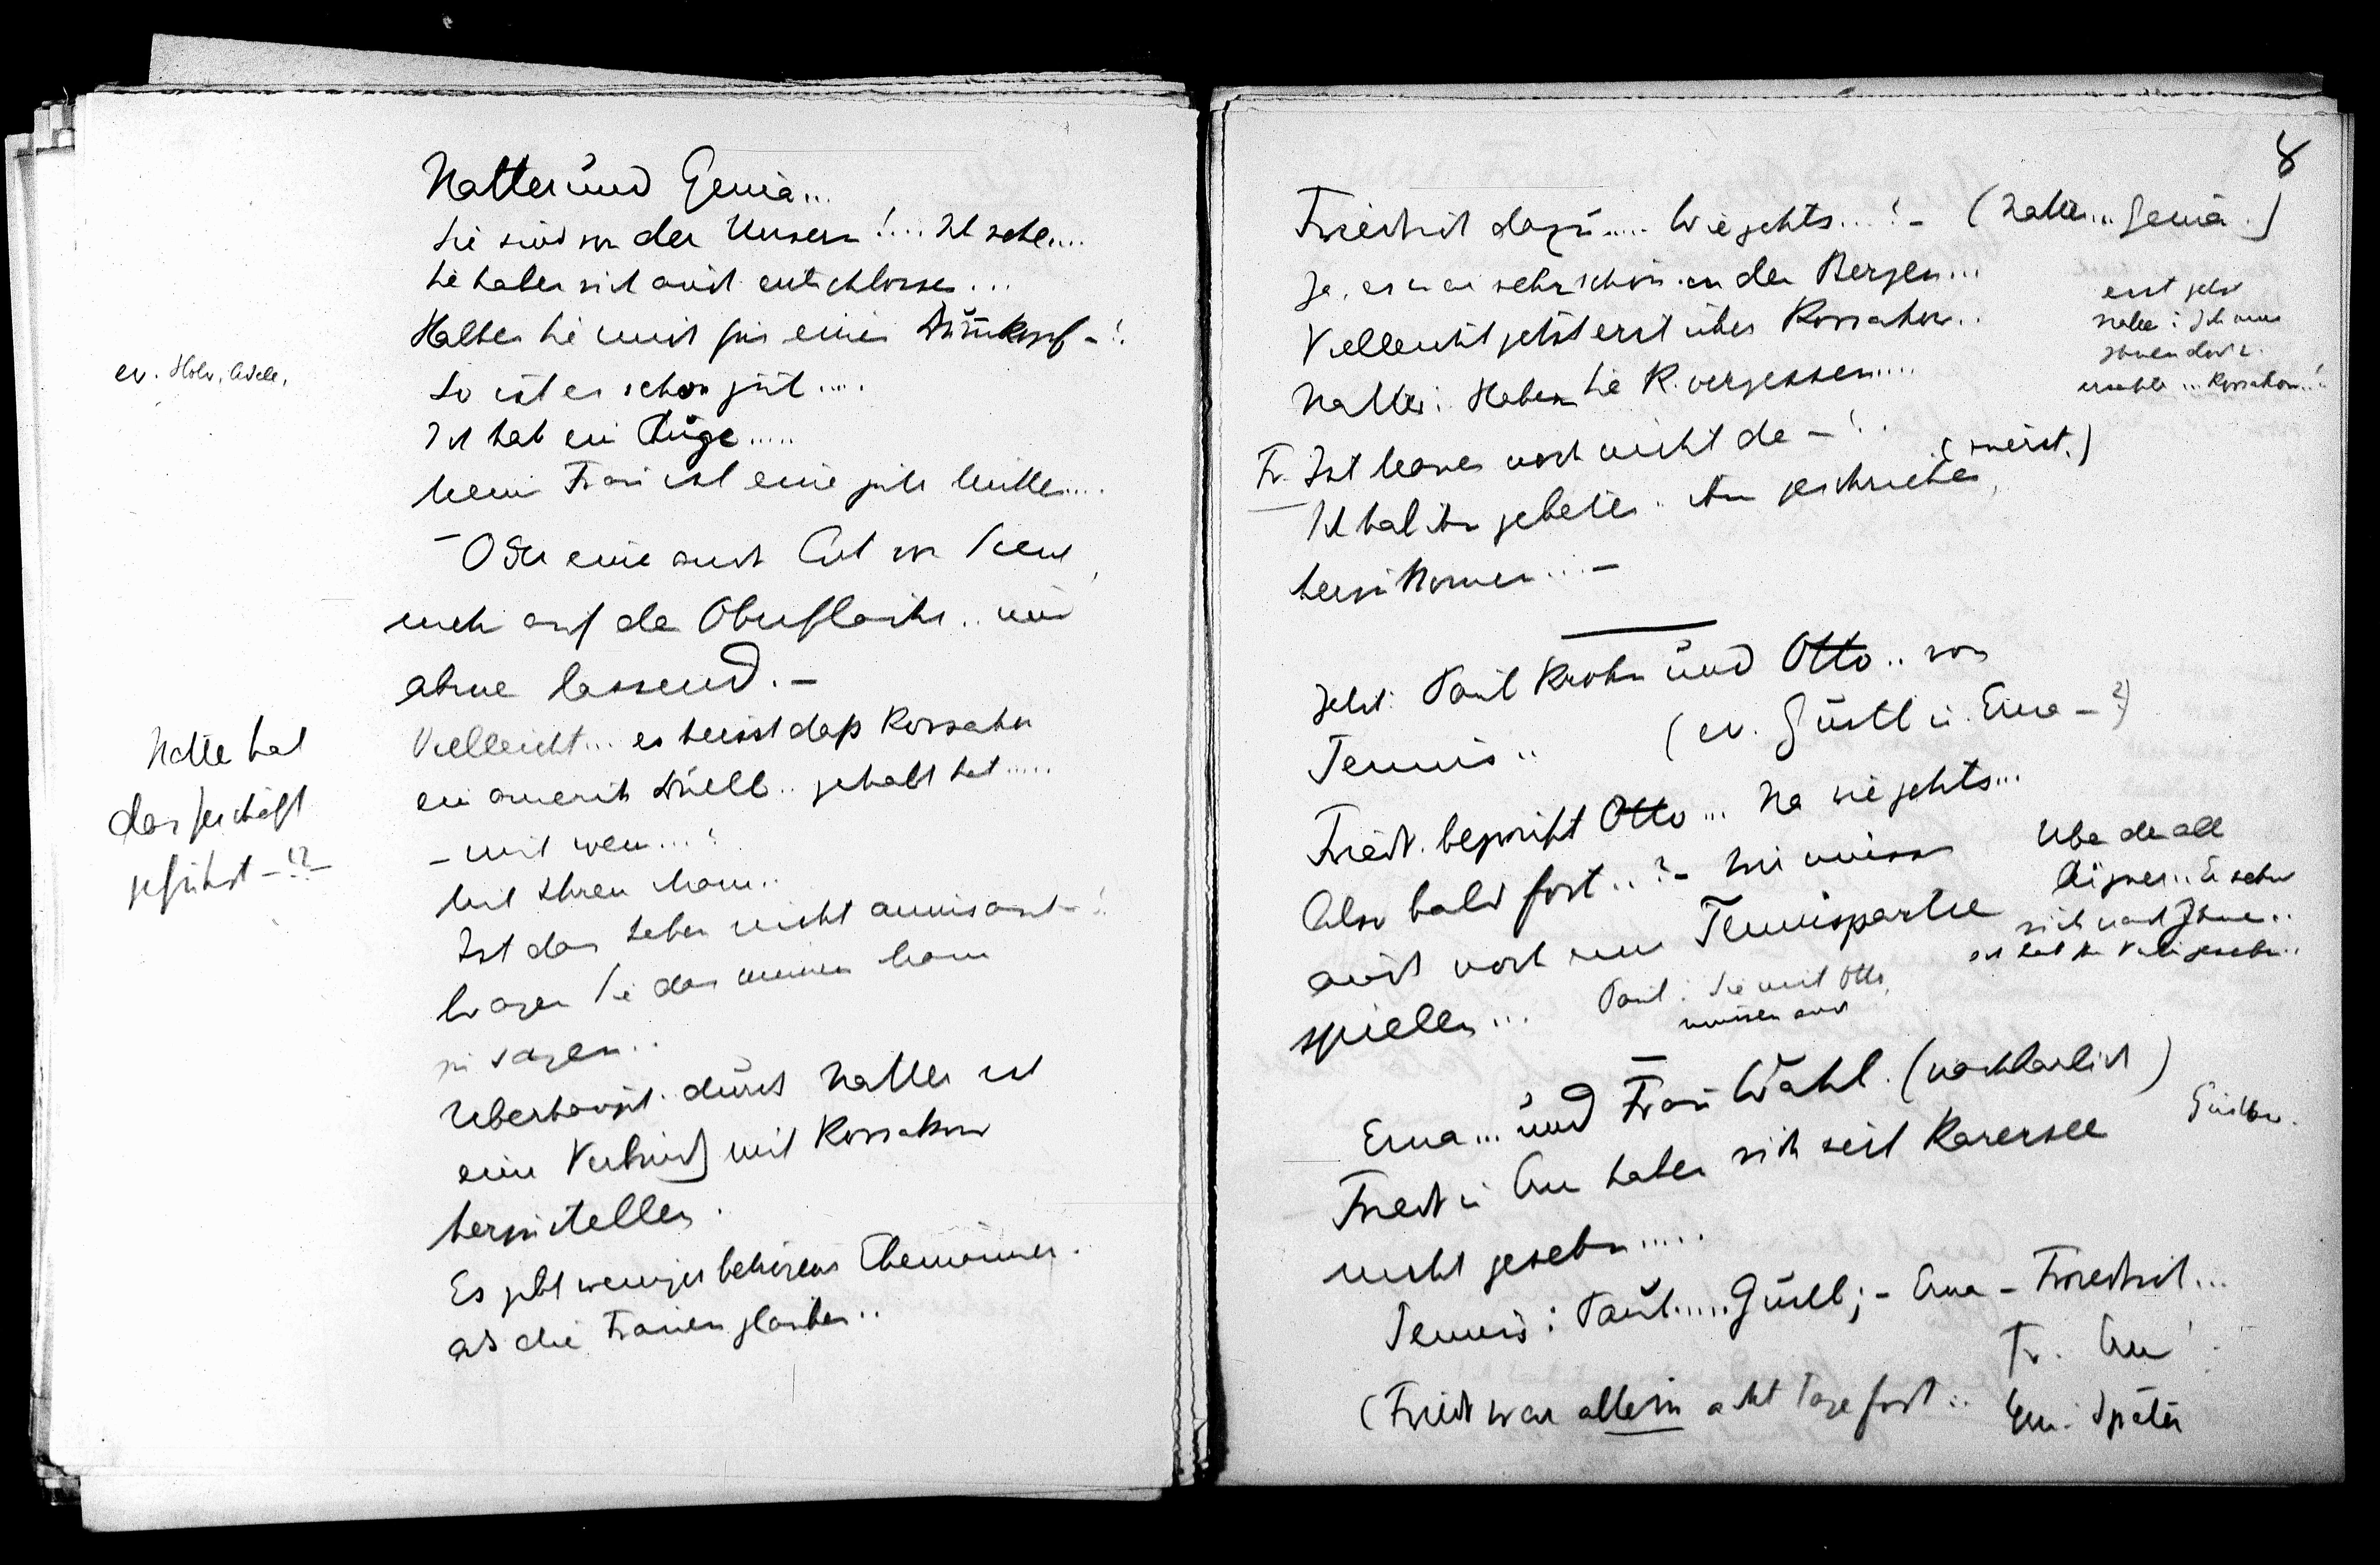 Natter und Genia...
Sie sind von der Unsern!... Ich sehe....
Sie haben sich auch entschlossen...
Halten Sie mich für einen Dummkopf -!
ev. Hofr., Adele,
So ist es schon gut....
Ich hab ein Auge.....
Meine Frau ist eine gute Mutter....
- Oder eine auch Art von
mehr auf der Oberfläche.. nur
ahnen lassend. -
Vielleicht... es heisst daß Korsakow
ein amerik Duell.. gehabt hat.....
Natter hat
das Geschäft
geführt -!?-
- mit wem...?
Mit Ihrem Mann..
Ist das Leben nicht amusant -!
Wagen Sie das meinem Mann
zu sagen..
Überhaupt. durch Natter ist
eine Verbindg mit Korsakow
herzustellen.
Es gibt weniger betrogene Ehemänner.
als die Frauen glauben..
8
Friedrich dazu..... Wie gehts...! - (Natter... Genia.)
Ja, es war sehr schön in den Bergen...
Vielleicht jetzt erst über Korsakow..
erst jetzt
Natter: Ich muss
Ihnen doch
erzählen... Korsakow..!
Natter: Haben Sie K. vergessen.....
Fr. Ist Mauer noch nicht da -!..
(zuerst.)
Ich hab ihn gebeten. ihm geschrieben,
herzukommen...-
Jetzt: Paul Kreindl und Otto.. vom
Tennis.. (ev. Gustl u. Erna - ?)
Friedr. begrüßt Otto... Na wie gehts...
Also bald fort..? - Wir müssen
auch noch eine Tennispartie
spielen...
Über den alten
Aigner.. Er sehnt
sich nach Ihnen..
Paul: Sie mit Otto,
müssen auch
Erna... und Frau Wahl. (nachbarlich)
Gustl
Friedr u Erna haben sich seit Karersee
nicht gesehn.....
Tennis: Paul..... Gustl; - Erna - Friedrich...
(Friedr war allein acht Tage fort..
Fr. Erna
Ern. Später